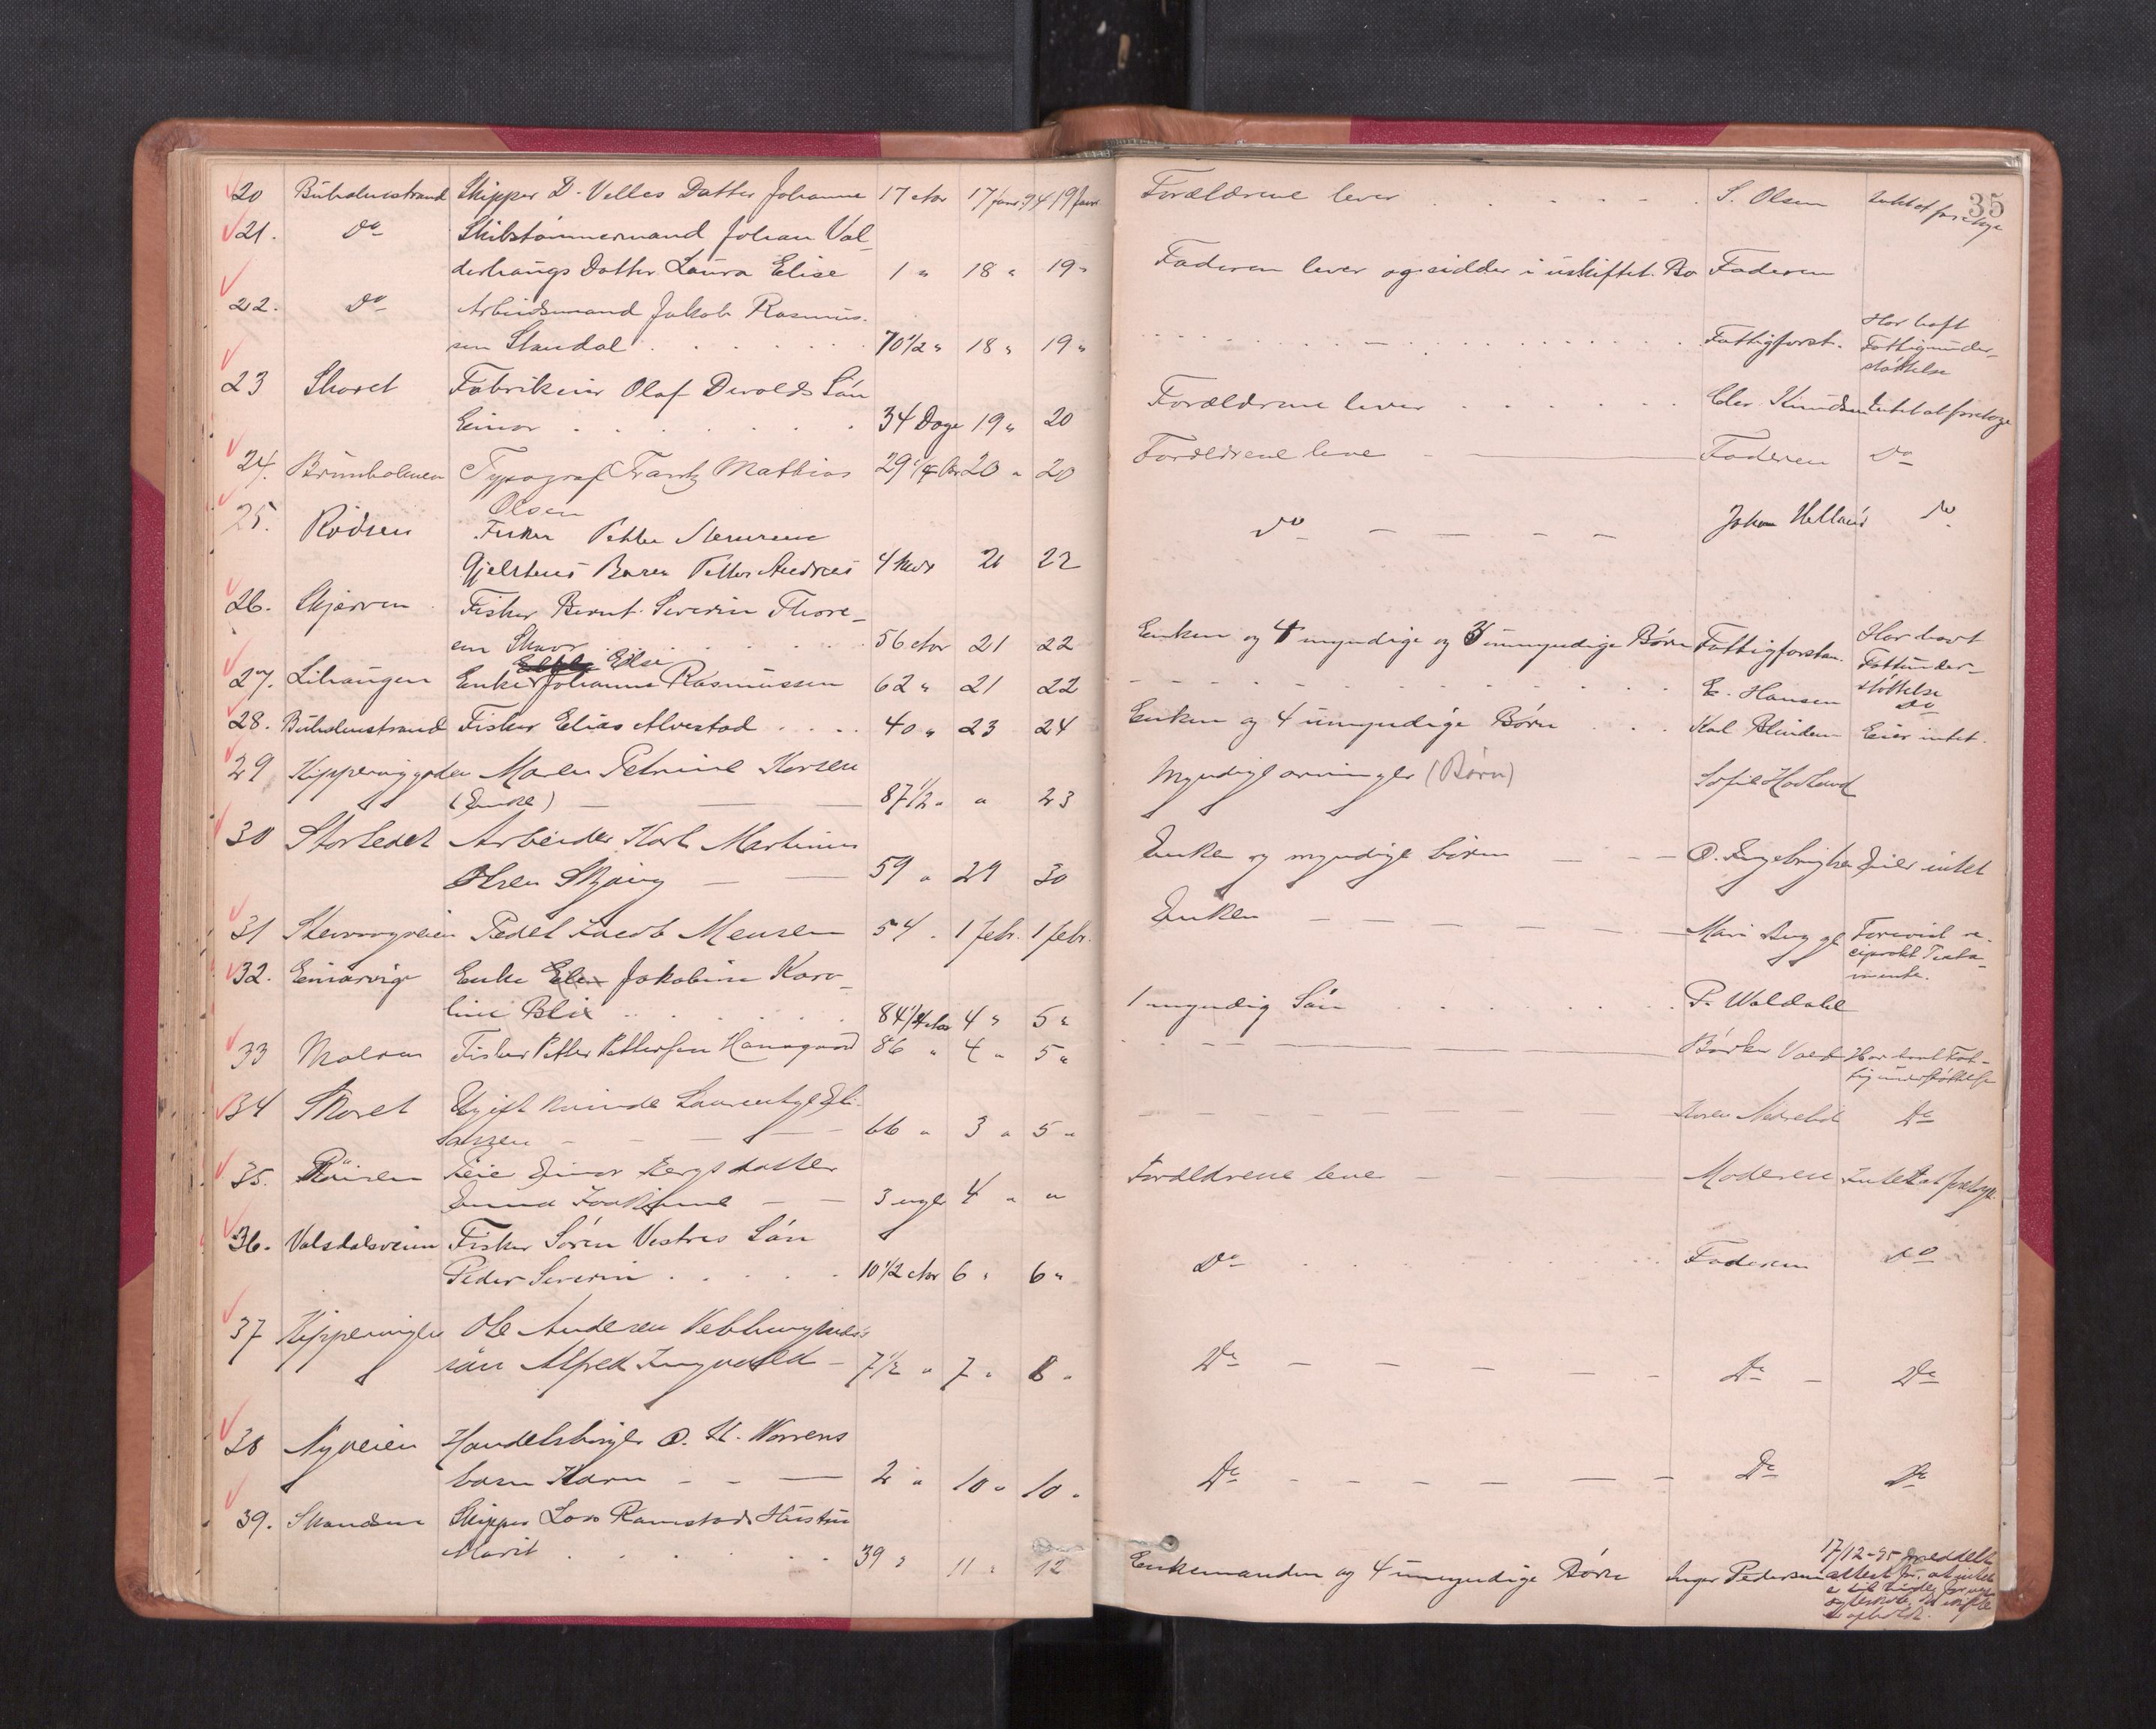 35
20 Buholmstrand Skipper D. Velles Datter Johanne 17 Aar 17 Janr. 94 19 Janr. Forældrene lever S. Olsen Intet at foretage
21. Do Skibstømmermand Johan Val-
derhaugs Datter Laura Elise 1 " 18 " 19 " Faderen lever og sidder i uskiftet Bo Faderen
22. Do Arbeidsmand Jakob Rasmus-
sen Standal 70 1/2 " 18 " 19 " Fattigforst. Har havt
Fattigunder-
støttelse
23 Skaret Fabrikeier Olaf Devolds Søn
Einar 34 Dage 19 " 20 Forældrene lever Chr. Knudsen Intet at foretage
24. Brunholmen Typograf Frantz Mathias 29 1/4 Aar 20 " 20 Forældrene leve Faderen Do
Olsen
25. Rødsen Fisker Petter
Gjelstens Barn Petter Andreas 4 Mdr 21 22 Do — — — — Johan Helland Do
26. Skjerven Fisker Bernt Severin Thore-
sen Skaar 56 Aar 21 22 Enken og 4 myndige og 3 umyndige Børn Fattigforstan. Har havt
Fattunder-
støttelse
27. Lihaugen Enke Else Johanne Rasmussen 62 " 21 22 E. Hansen Do
28. Buholmstrand Fisker Elias Alvestad 40 " 23 24 Enken og 4 umyndige Børn Karl Blindem Eier intet.
29 Kipperviggaden Maren Petrine Korsen
(Enke) — — — 87 1/2 " " 23 Myndige arvinger (Børn) Sofie Hovland
30 Storledet Arbeider Karl Martinus
Olsen Skjong — — 59 " 29 30 Enke og myndige børn — — — O. Ingebrigtsen Eier intet
31 Stenvaagveien Pedel Jacob Mensen 54 " 1 febr. 1 febr. Enken — — — — — Mari Bugge Forevist re-
ciprokt Testa-
mente.
32. Einarvig Enke Jakobine Karo-
line Blix 84 1/4 Aar 4 " 5 " 1 myndig Søn P. Waldahl
33 Molvær Fisker Petter Pettersen Hamngaard 86 " 4 " 5 " Har havt Fat-
tigunderstøttelse
34 Skaret Ugift Kvinde Laurentze Eli-
assen — — — — 66 " 3 " 5 " Karen Do
35. Røisen Feier Einar Bergs datter
Emma Joakime — — 3 uger 4 " " Forældrene leve — — — Moderen Intet at foretage
36. Volsdalsveien Fisker Søren Vestres Søn
Peder Severin 10 1/2 Aar 6 " 6 " Do Faderen Do
37 Kippervigen Ole Andersen Veblungsnæs's
søn Alfred Ingvald — 7 1/2 " 7 " 8 " Do — — — — — Do — Do
38 Nyveien Handelsborger O. H. Worrens
barn Karn — — — 2 " 10 " 10 " Do — — — — — Do Do
39. Skandsen Skipper Lars Ramstads Hustru
Marit 39 " 11 " 12 Enkemanden og 4 umyndige Børn Inger Pedersen 17/12-95 meddelt
attest